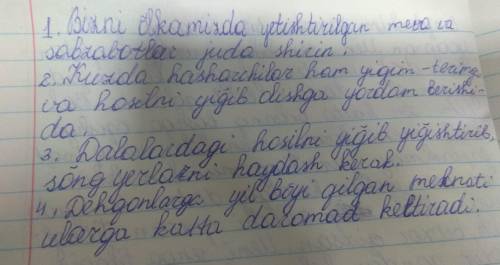 1. Bizni ölkamizda yetishtirilgan meva va
sabzabotlar juda shirin.
2. Kuzda hasharchilar ham yigim-terimga
va hosilni yiğib olishga yordam berishi-
da.
3. Dalalardagi hosilni yiğib yiğishtirib,
song yerlarni haydash kerak.
4. Dehqonlarga yil böyi qilgan mehnati
ularga katta daromad keltiradi.